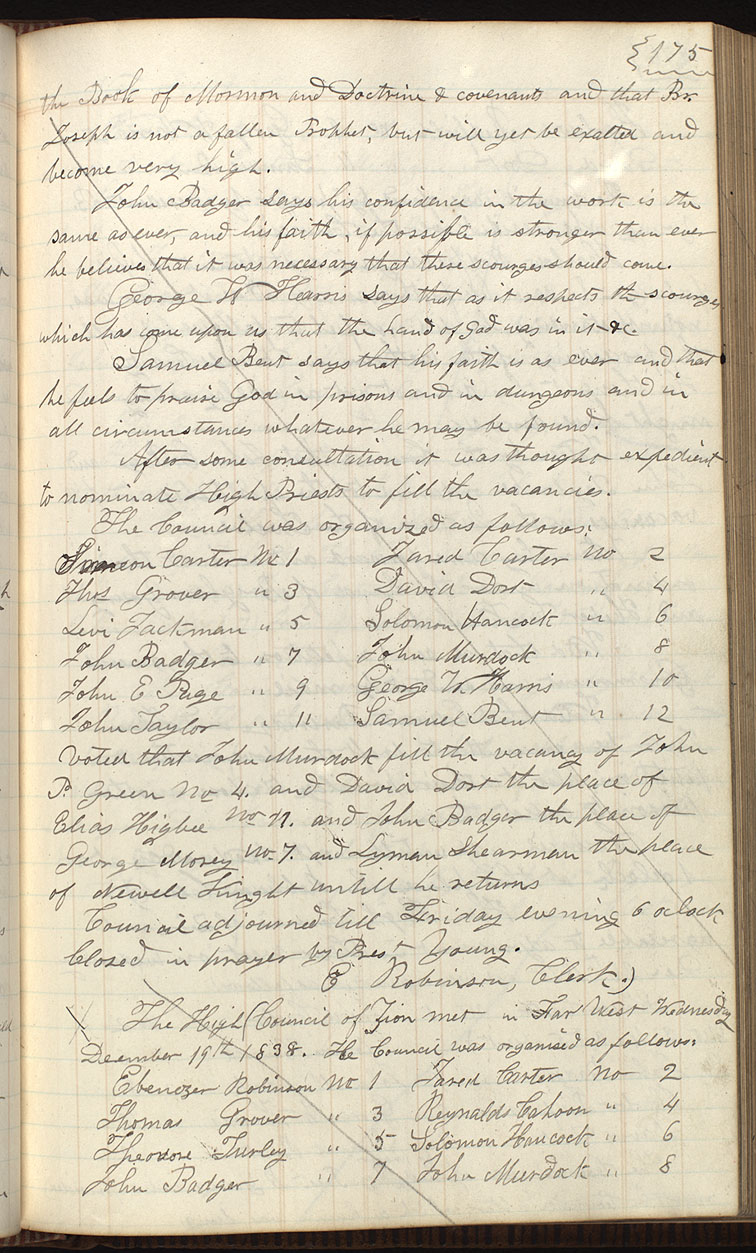 175
the Book of Mormon and Doctrine & covenants and that Br.
Joseph is not a fallen Prophet, but will yet be exalted and
become very high.
John Badger says his confidence in the work is the
same as ever, and his faith, if possible is stronger than ever
he believes that it was necessary that these scourges should come.
George W Harris says that as it respects the scourges
which has come upon us that the hand of God was in it &c.
Samuel Bent says that his faith is as ever and that
he feels to praise God in prisons and in dungeons and in
all circumstances whatever he may be found.
After some consultation it was thought expedient
to nominate High Priests to fill the vacancies.
The Council was organized as follows:
Simeon Carter No 1 Jared Carter No 2
Thos Grover " 3 David Dort " 4
Levi Jackman " 5 Solomon Hancock " 6
John Badger " 7 John Murdock " 8
John E Page " 9 George W. Harris " 10
John Taylor " 11 Samuel Bent " 12
Voted that John Murdock fill the vacancy of John
P. Green No 4. and David Dort the place of
Elias Higbee No 11. and John Badger the place of
George Morey No 7. and Lyman Shearman the place
of Newell Knight untill he returns
Council adjourned till Friday evening 6 oclock
Closed in prayer by Prest Young.
E Robinson, Clerk.)
The High Council of Zion met in Far West Wednesday
December 19th 1838. The Council was organised as follows:
Ebenezer Robinson No 1 Jared Carter No 2
Thomas Grover " 3 Reynolds Cahoon " 4
Theodore Turley " 5 Solomon Hancock " 6
John Badger " 7 John Murdock " 8